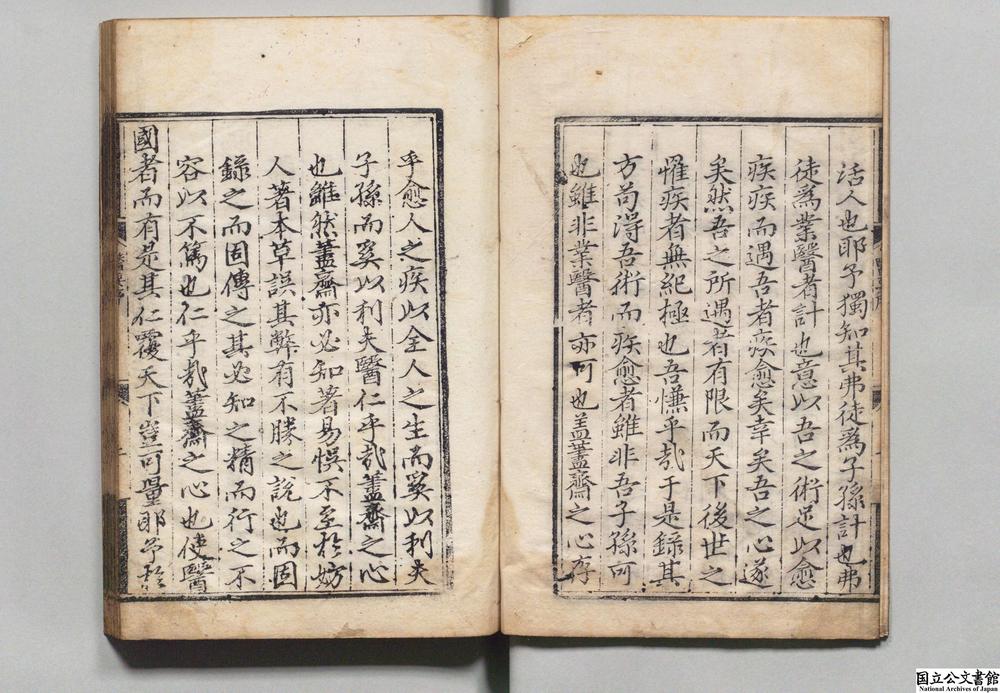 活人也耶予獨知其弗徒為子孫計也弗
徒為業醫者計也意以吾之術足以愈
疾疾而遇吾者疾愈矣幸矣吾之心遂
矣然吾之所遇者有限而天下後世之
罹疾者無紀極也吾慊乎哉于是錄其
方苟得吾術而疾愈者雖非吾子孫可
也雖非業醫者亦可也盖藎齋之心存
乎愈人之疾以全人之生而奚以利夫
子孫而奚以利夫醫仁乎哉藎齋之心
也雖然藎齋亦必知著易悞不至於妨
人著本草誤其弊有不勝之說也而固
錄之而固傳之其必知之精而行之不
容以不篤也仁乎哉藎齋之心也使醫
國者而有是其仁覆天下豈可量耶予於
国立公文書館
National Archives of Japan